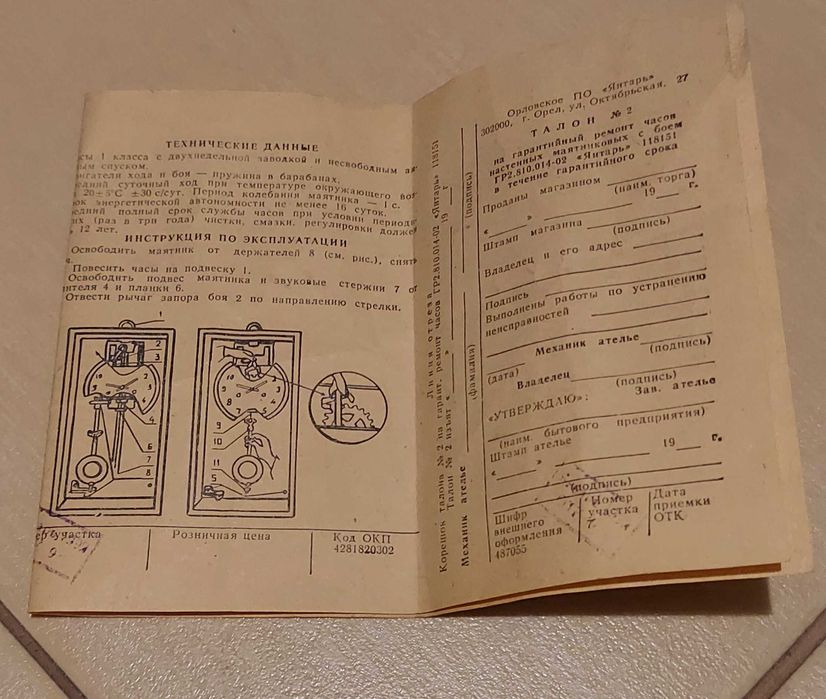 ТЕХНИЧЕСКИЕ ДАННЫЕ
1 класса с двухнедельной заводкой и несвободным
спуском.
хода и боя — пружина в барабанах.
суточный ход при температуре окружающего
20±5°С ±30 с/сут. Период колебания маятника — 1 с.
энергетической автономности не менее 16 суток.
полный срок службы часов при условии
(раз в три года) чистки, смазки, регулировки
12 лет.
ИНСТРУКЦИЯ ПО ЭКСПЛУАТАЦИИ
Освободить маятник от держателей 8 (см. рис.),
Повесить часы на подвеску 1.
Освободить подвес маятника и звуковые стержни 7
4 и планки 6.
Отвести рычаг запора боя 2 по направлению стрелки.
1
2
3
4
6
7
8
9
10
11
5
участка
Розничная цена
Код ОКП
4281820302
Корешок талона № 2 на гарант. ремонт часов ГР2.810.014-02 «Янтарь» 118151
Талон № 2 изъят « » 19 г.
Механик ателье (фамилия) (подпись)
Линия отреза
Орловское ПО «Янтарь»
302000, г. Орел, ул. Октябрьская, 27
ТАЛОН № 2
на гарантийный ремонт часов
настенных маятниковых с боем
ГР2.810.014-02 «Янтарь» 118151
в течение гарантийного срока
Проданы магазином
(наим. торга)
« » 19 г.
Штамп магазина
(подпись)
Владелец и его адрес
Подпись
Выполнены работы по устранению
неисправностей
Механик ателье
(дата) (подпись)
Владелец
(подпись)
«УТВЕРЖДАЮ»: Зав. ателье
(наим. бытового предприятия)
Штамп ателье
« » 19 г.
(подпись)
Шифр внешнего оформления 487055
Номер участка
Дата приемки ОТК